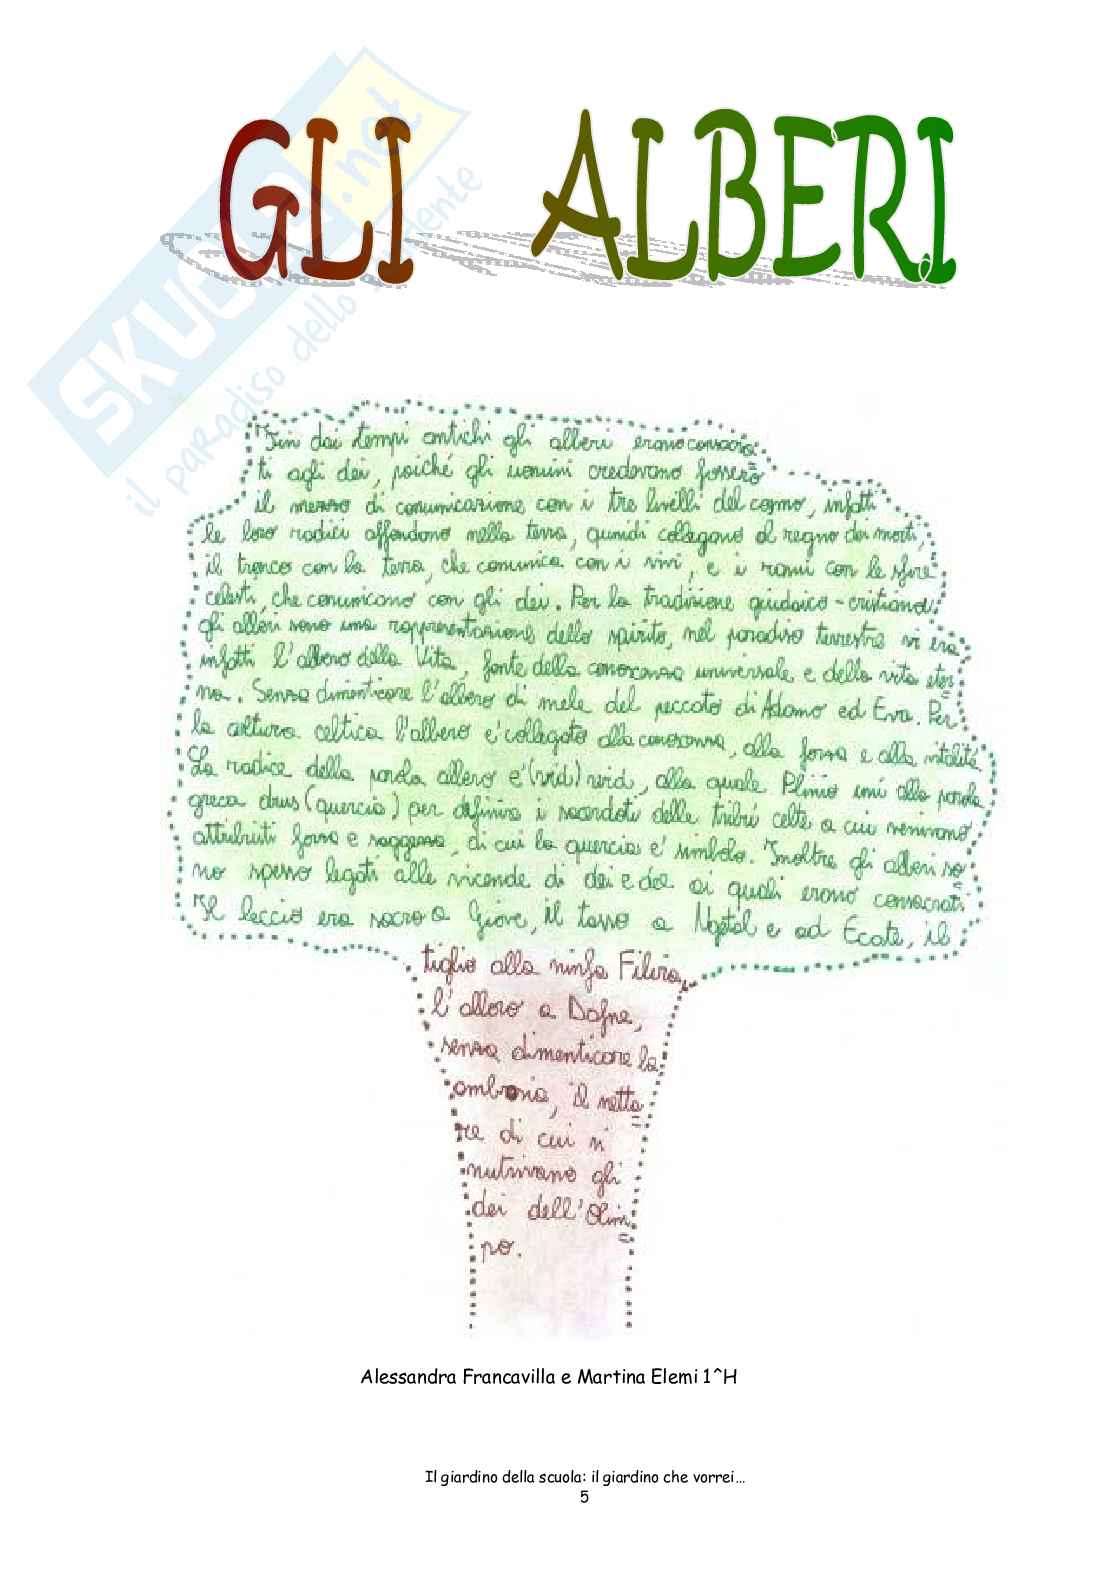 GLI ALBERI
SKUOLA.net
il paradiso dello studente
Fin dai tempi antichi gli alberi erano consacra
ti agli dei, poiché gli uomini credevano fossero
il mezzo di comunicazione con i tre livelli del cosmo, infatti
le loro radici affondono nella terra, quindi collegano al regno dei morti,
il tronco con la terra, che comunica con i vivi, e i rami con le sfire
celesti, che comunicano con gli dei. Per la tradizione giudaico-cristiana
gli alberi sono una rappresentazione dello spirito, nel paradiso terrestre vi era
infatti l'albero della Vita, fonte della conoscenza universale e della vita eter
na. Senza dimenticare l'albero di mele del peccato di Adamo ed Eva. Per
la cultura celtica l'albero e' collegato alla conoscenza, alla forza e alla vitalità
La radice della parola albero e' (vid) wid, alla quale Plinio unì alla parola
greca drus (quercia) per definire i sacerdoti delle tribù celte a cui venivano
attribuiti forza e saggezza, di cui la quercia e' simbolo. Inoltre gli alberi so
no spesso legati alle vicende di dei e dee ai quali erano consacrati
Il leccio era sacro a Giove, il tasso a e ad Ecate, il
tiglio alla ninfa Filira,
l'alloro a Dafne,
senza dimenticare la
ambrosia, il netta
re di cui si
nutrivano gli
dei dell'Olim
po.
Alessandra Francavilla e Martina Elemi 1^H
Il giardino della scuola: il giardino che vorrei…
5